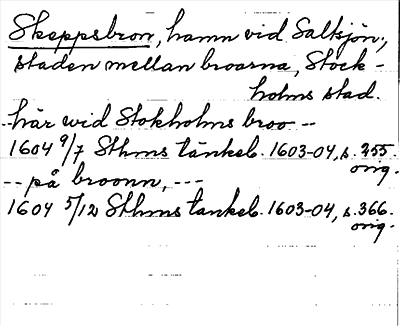 Skeppsbron, hamn vid Saltsjön,
staden mellan broarna, Stock-
holms stad.
--här wid Stokholms broo --
1604 9/7 Sthms tänkeb. 1603-04, s. 355.
orig.
-- på broonn, ---
1604 5/12 Sthms tankeb. 1603-04, s. 366.
orig.